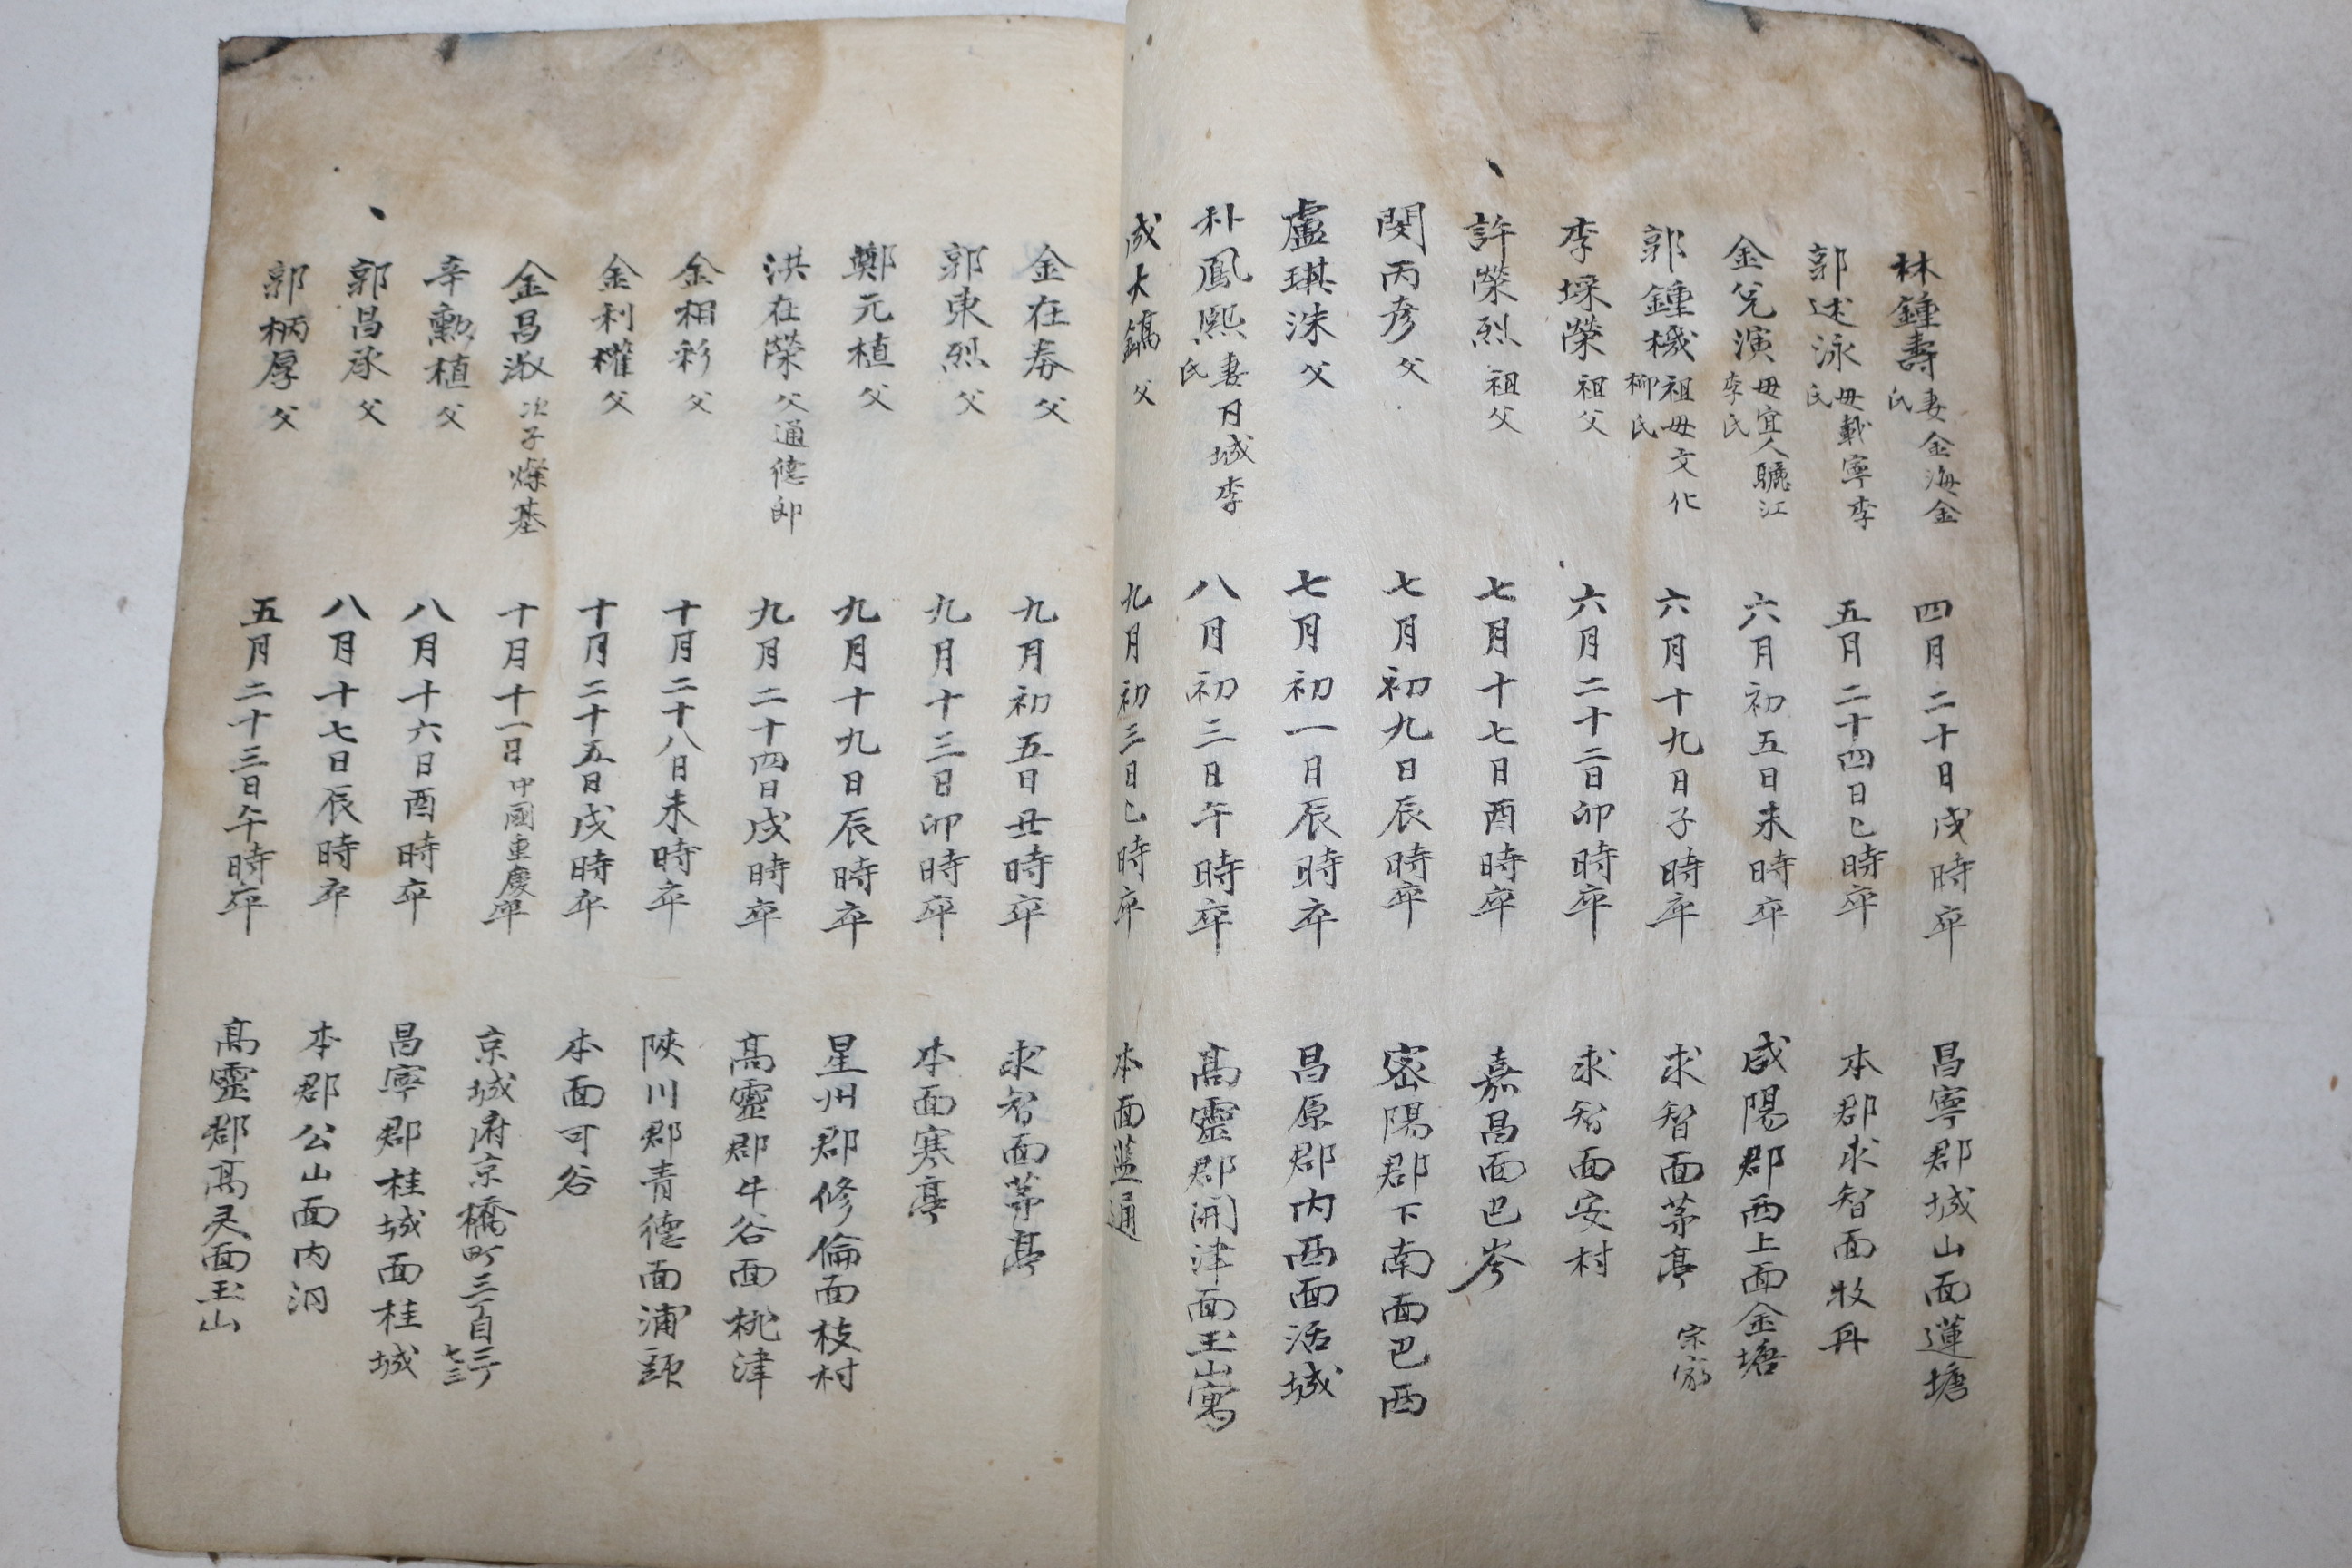 林鍾壽 妻金海金氏 四月二十日戌時卒 昌寧郡城山面蓮塘
郭述泳 母載寧李氏 五月二十四日巳時卒 本郡求智面牧丹
金兌演 母宜人驪江李氏 六月初五日未時卒 咸陽郡西上面金塘
郭鍾機 祖母文化柳氏 六月十九日子時卒 求智面茅亭 宗家
李埰榮 祖父 六月二十二日卯時卒 求智面安村
許榮烈 祖父 七月十七日酉時卒 嘉昌面巴岑
閔丙彦 父 七月初九日辰時卒 密陽郡下南面巴西
盧琪洙 父 七月初一日辰時卒 昌原郡內西面活城
朴鳳熙 妻月城李氏 八月初三日午時卒 高靈郡開津面玉山寓
成大鎬 父 九月初三日巳時卒 本面藍通
金在 父 九月初五日丑時卒 求智面茅亭
郭東烈 父 九月十三日卯時卒 本面寒亭
鄭元植 父 九月十九日辰時卒 星州郡修倫面枝村
洪在榮 父通德郎 九月二十四日戌時卒 高靈郡牛谷面桃津
金相彩 父 十月二十八日未時卒 陜川郡青德面浦頭
金利權 父 十月二十五日戌時卒 本面可谷
金昌淑 次子燦基 十月十一日中國重慶卒 京城府京橋町三百
辛勳植 父 八月十六日酉時卒 昌寧郡桂城面桂城
郭昌承 父 八月十七日辰時卒 本郡公山面內洞
郭柄厚 父 五月二十三日午時卒 高靈郡高灵面玉山